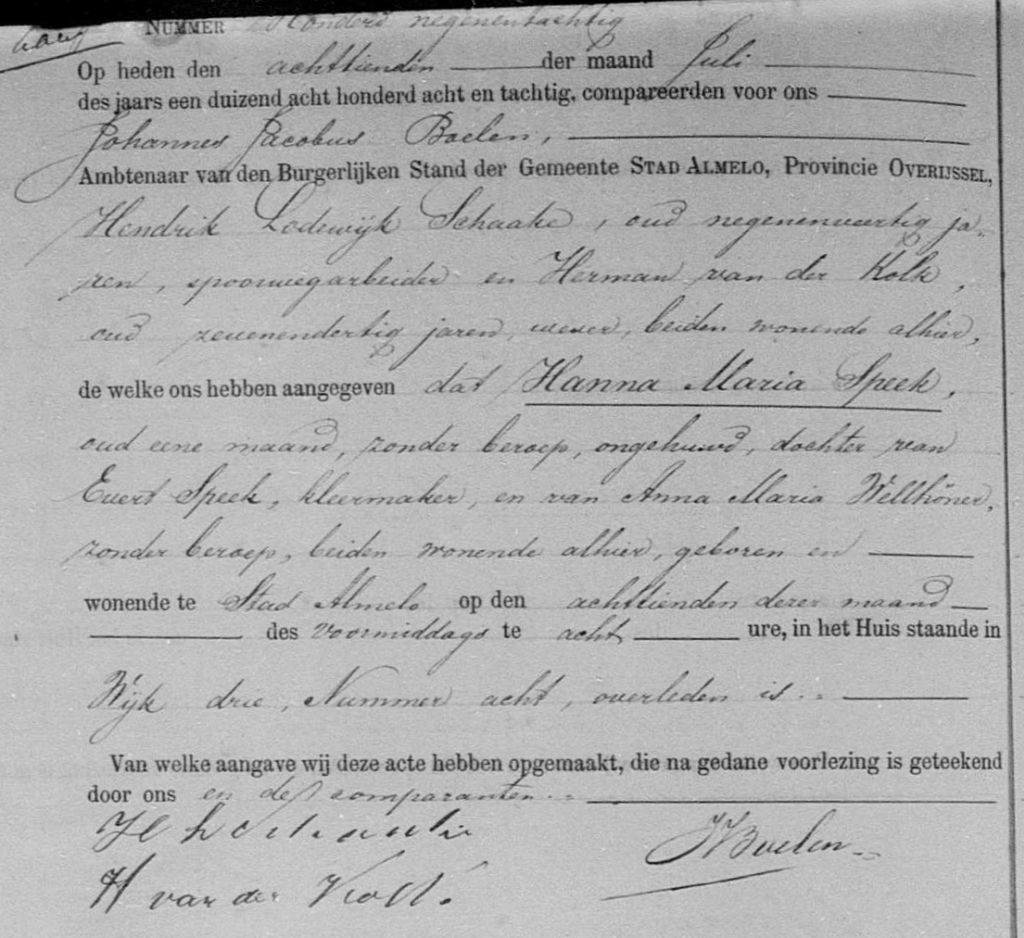 NUMMER Honderd negenentachtig
Op heden den achttienden der maand Juli
des jaars een duizend acht honderd acht en tachtig, compareerden voor ons
Johannes Jacobus Boelen,
Ambtenaar van den Burgerlijken Stand der Gemeente STAD ALMELO, Provincie OVERIJSSEL,
Hendrik Lodewijk Schaake, oud negenenveertig ja-
ren, spoorwegarbeider en Herman van der Kolk,
oud zevenendertig jaren, wever, beiden wonende alhier,
de welke ons hebben aangegeven dat Hanna Maria Speek,
oud eene maand, zonder beroep, ongehuwd, dochter van
Evert Speek, kleermaker, en van Anna Maria Wellhöner,
zonder beroep, beiden wonende alhier, geboren en
wonende te Stad Almelo op den achttienden dezer maand
des voormiddags te acht ure, in het Huis staande in
Wijk drie, Nummer acht, overleden is.
Van welke aangave wij deze acte hebben opgemaakt, die na gedane voorlezing is geteekend
door ons en de comparanten.
H L Schaake
JJBoelen
H van der Kolk.